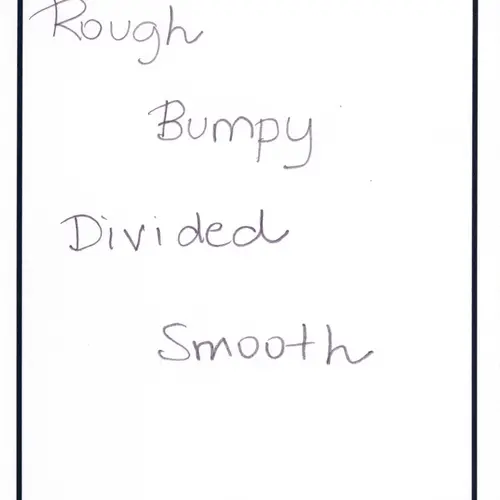 Rough
Bumpy
Divided
Smooth